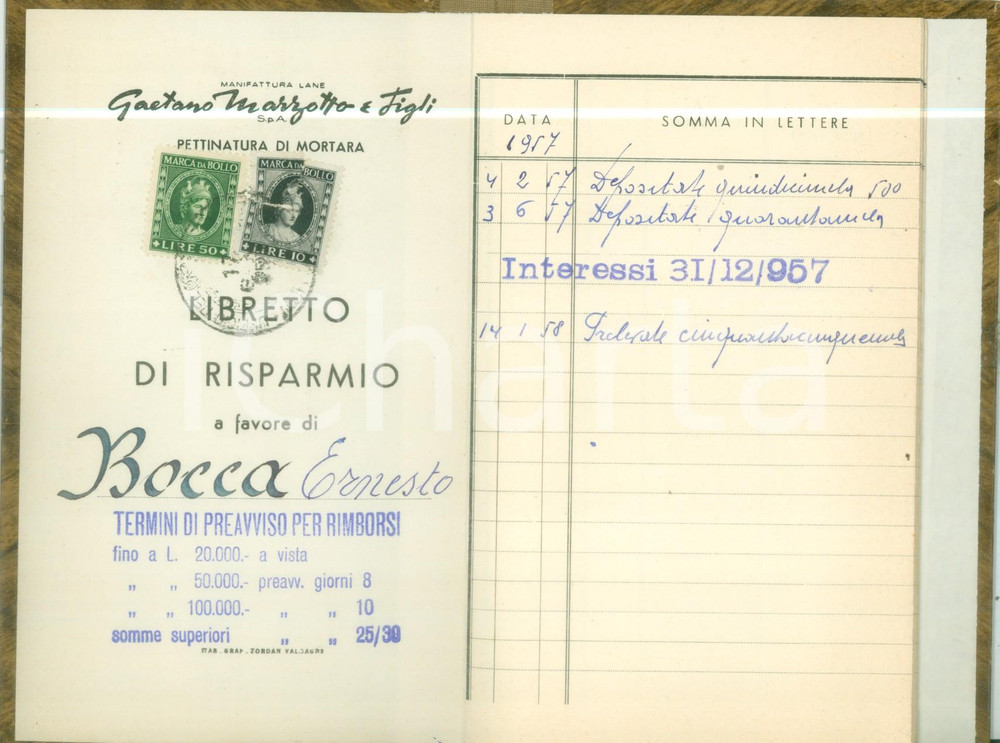 MANIFATTURA LANE
Gaetano Marzotto e Figli
S.p.A.
PETTINATURA DI MORTARA
MARCA DA BOLLO
LIRE 50
MARCA DA BOLLO
LIRE 10
LIBRETTO
DI RISPARMIO
a favore di
Bocca Ernesto
TERMINI DI PREAVVISO PER RIMBORSI
fino a L. 20.000.- a vista
„ „ 50.000.- preavv. giorni 8
„ „ 100.000.- „ „ 10
somme superiori „ „ 25/30
STAB. GRAF. ZORDAN VALDAGNO
DATA SOMMA IN LETTERE
1957
4 2 57 Depositate quindicimila 500
3 6 57 Depositate quarantamila
Interessi 31/12/957
14 1 58 Prelevate cinquantacinquemila
icharta